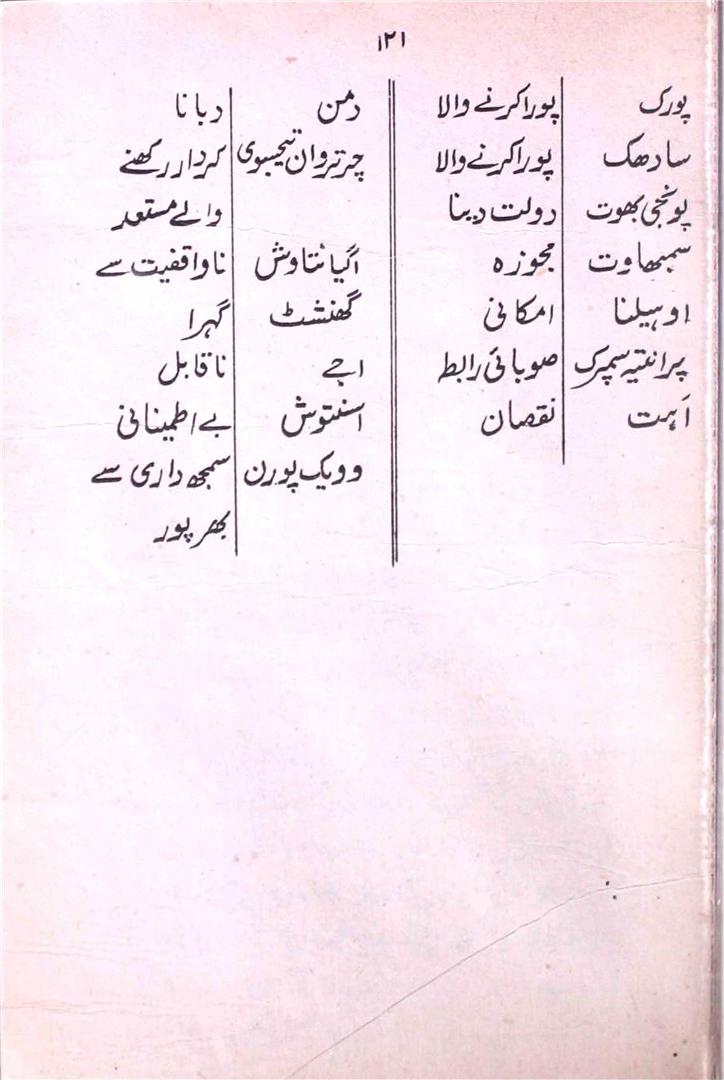 ۱۲۱
پورک پورا کرنے والا
سادھک پورا کرنے والا
پونجی بھوت دولت دینا
سمبھاوت مجوزہ
اوہیلنا امکانی
پرانتیہ سمپرک صوبائی رابط
اَہت نقصان
دمن دبانا
چرتروان تیجسوی کردار رکھنے
والے مستعد
اگیانتاوش ناواقفیت سے
گھنشٹ گہرا
اجے ناقابل
اسنتوش بے اطمینانی
وویک پورن سمجھ داری سے
بھرپور